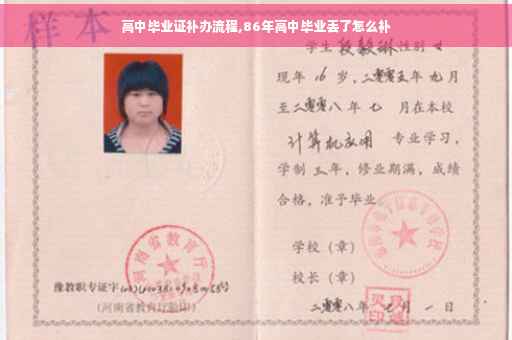 高中毕业证补办流程,86年高中毕业丢了怎么补
样本
学生 段毅琳 性别 女
现年 16 岁,二零零五年 九月
至二零零八年 七 月在本校
计算机应用 专业学习,
学制 三 年,修业期满,成绩
合格,准予毕业
学校(章)
校长(章)
二零零八年 月 一 日
河南省教育厅
豫教职专证字
(河南省教育厅验印)